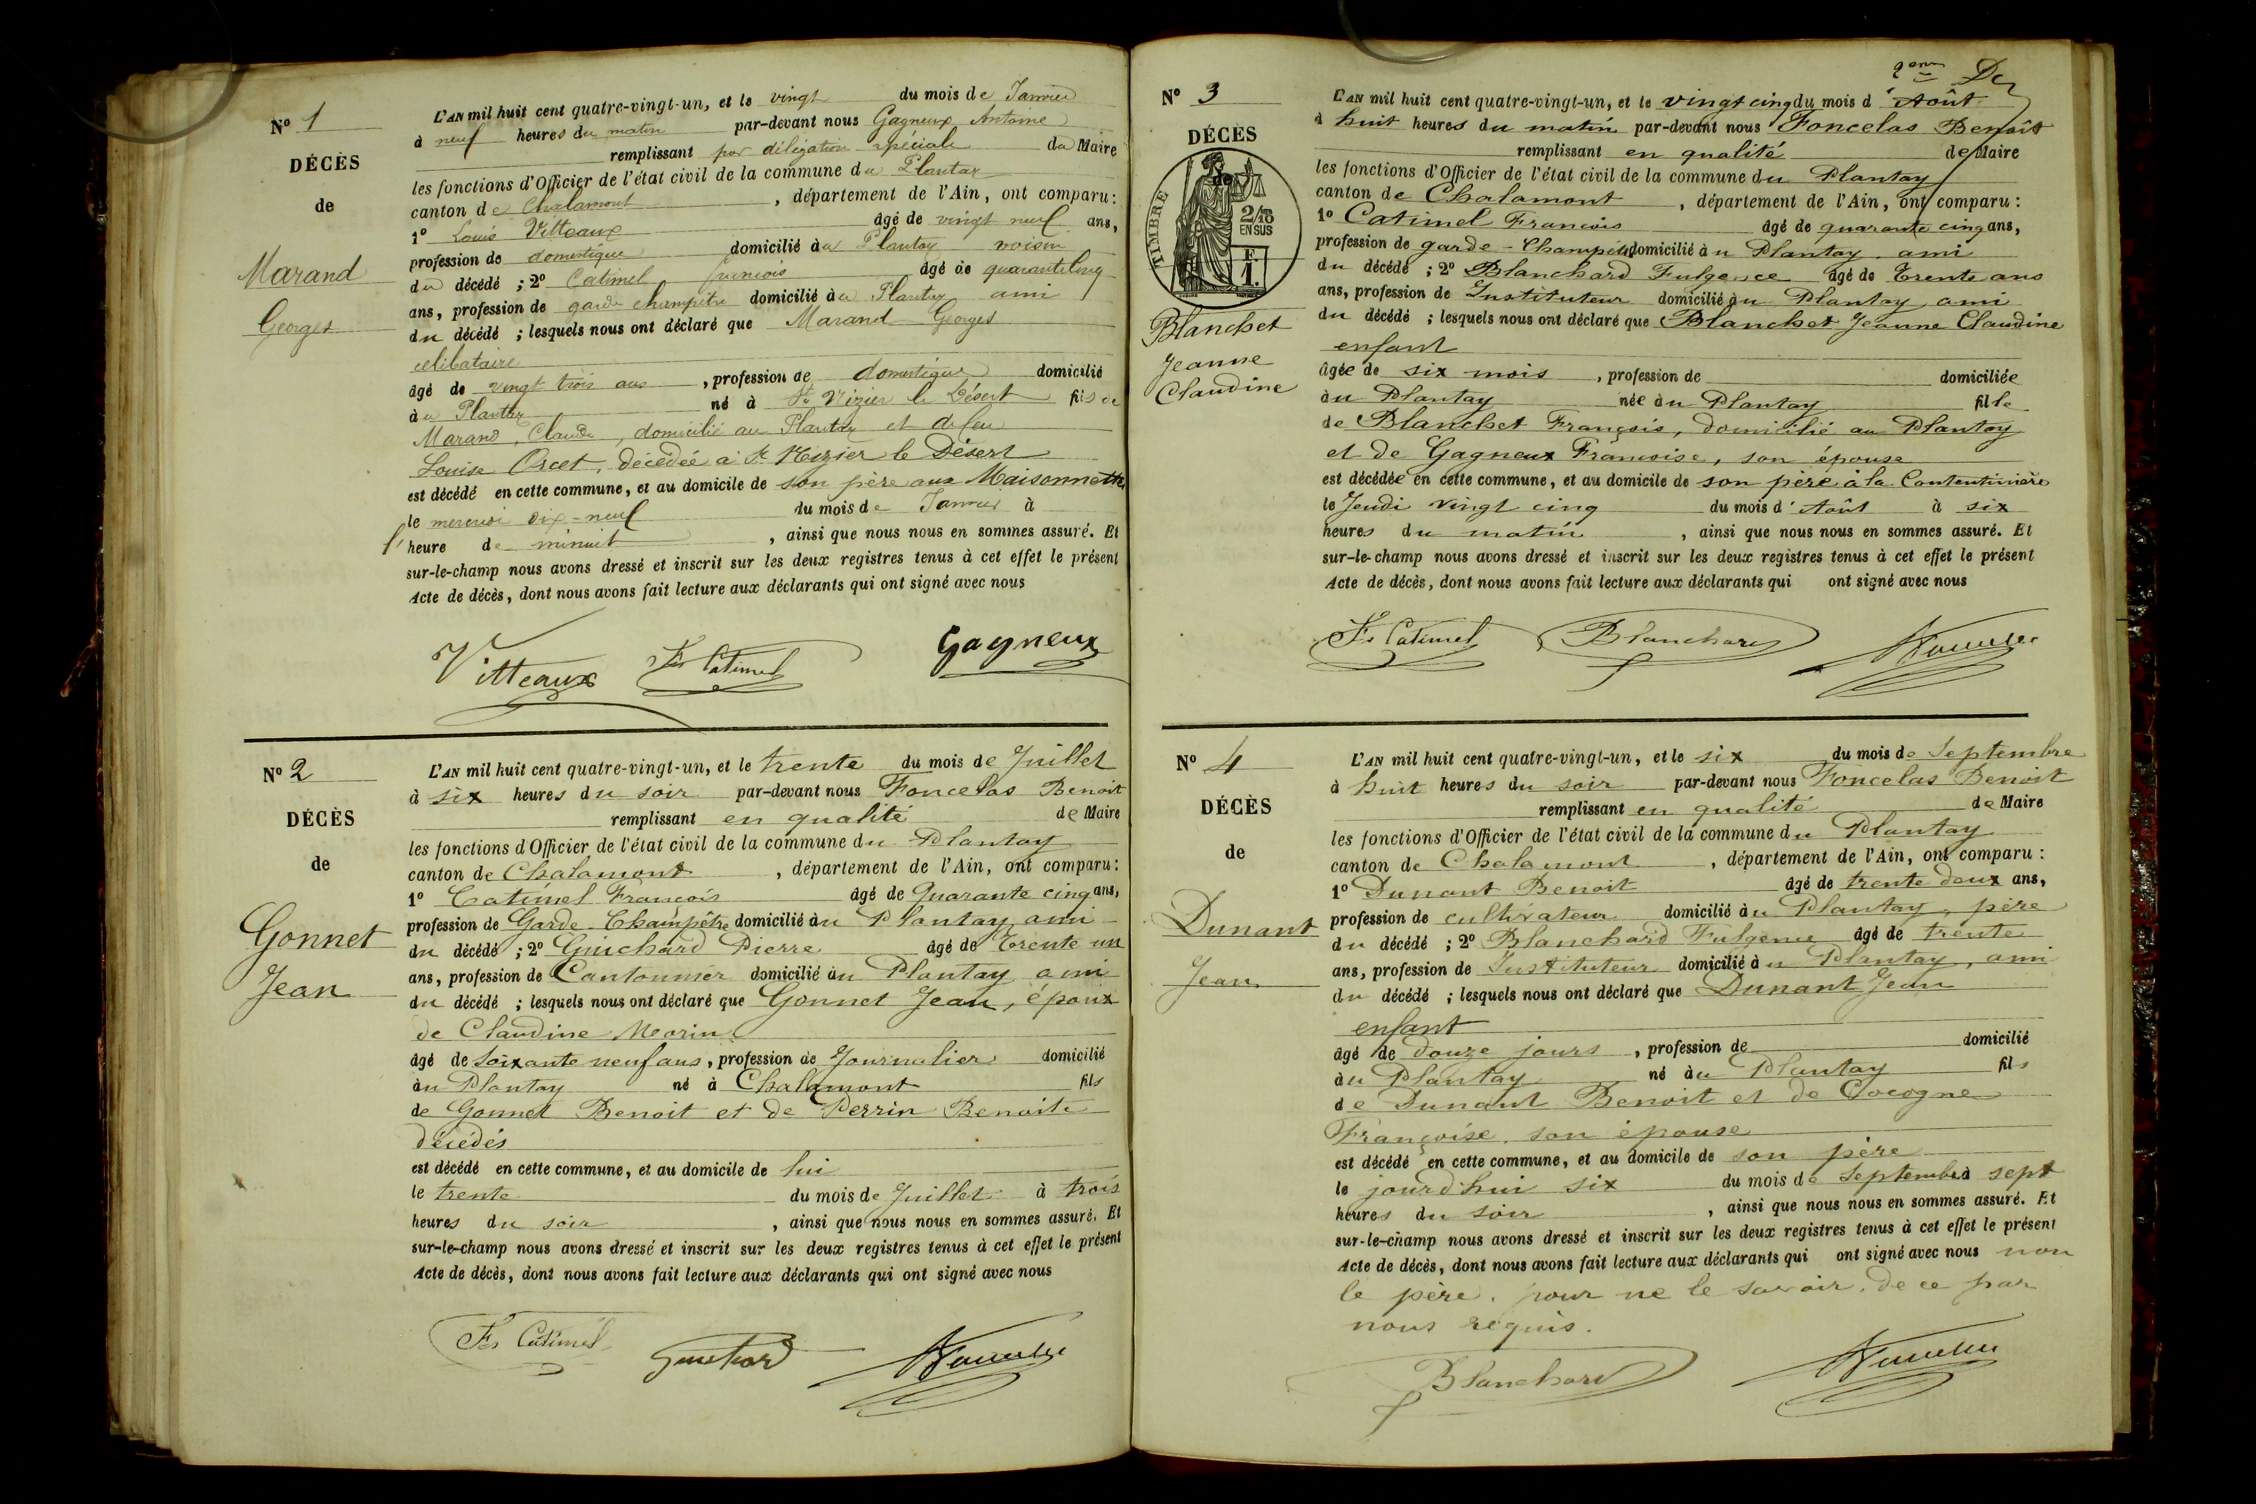 N° 1
DÉCÈS
de
Marand
Georges
L'AN mil huit cent quatre-vingt-un, et le vingt du mois de Janvier
à neuf heures du matin par-devant nous Gagneux Antoine
remplissant par délégation spéciale du Maire
les fonctions d'Officier de l'état civil de la commune du Plantay
canton de Chalamont, département de l'Ain, ont comparu:
1° Louis Vitteaux âgé de vingt neuf ans,
profession de domestique domicilié au Plantay voisin
du décédé ; 2° Catimel françois âgé de quarante cinq
ans, profession de garde champêtre domicilié au Plantay ami
du décédé ; lesquels nous ont déclaré que Marand Georges
célibataire
âgé de vingt trois ans, profession de domestique domicilié
au Plantay né à St Nizier le Désert fils de
Marand, Claude, domicilié au Plantay et de feu
Louise Orcet, décédée à St Nizier le Désert
est décédé en cette commune, et au domicile de son père aux Maisonnettes
le mercredi dix-neuf du mois de Janvier à
l'heure de minuit, ainsi que nous nous en sommes assuré. Et
sur-le-champ nous avons dressé et inscrit sur les deux registres tenus à cet effet le présent
Acte de décès, dont nous avons fait lecture aux déclarants qui ont signé avec nous
Vitteaux Fs Catimel Gagneux
N° 2
DÉCÈS
de
Gonnet
Jean
L'AN mil huit cent quatre-vingt-un, et le trente du mois de Juillet
à six heures du soir par-devant nous Foncelas Benoit
remplissant en qualité de Maire
les fonctions d'Officier de l'état civil de la commune du Plantay
canton de Chalamont, département de l'Ain, ont comparu:
1° Catimel François âgé de Quarante cinq ans,
profession de Garde-Champêtre domicilié au Plantay ami
du décédé ; 2° Guichard Pierre âgé de Trente un
ans, profession de Cantonnier domicilié au Plantay ami
du décédé ; lesquels nous ont déclaré que Gonnet Jean, époux
de Claudine Morin
âgé de soixante neuf ans, profession de Journalier domicilié
au Plantay né à Chalamont fils
de Gonnet Benoit et de Perrin Benoite
décédés
est décédé en cette commune, et au domicile de lui
le trente du mois de Juillet à trois
heures du soir, ainsi que nous nous en sommes assuré. Et
sur-le-champ nous avons dressé et inscrit sur les deux registres tenus à cet effet le présent
Acte de décès, dont nous avons fait lecture aux déclarants qui ont signé avec nous
Fs Catimel Guichard
N° 3
DÉCÈS
de
TIMBRE
2/10
EN SUS
Blanchet
Jeanne
Claudine
L'AN mil huit cent quatre-vingt-un, et le vingt cinq du mois d'Août
à huit heures du matin par-devant nous Foncelas Benoît
remplissant en qualité de Maire
les fonctions d'Officier de l'état civil de la commune du Plantay
canton de Chalamont, département de l'Ain, ont comparu :
1° Catimel François âgé de quarante cinq ans,
profession de garde-Champêtre domicilié au Plantay ami
du décédé ; 2° Blanchard Fulgence âgé de Trente ans
ans, profession de Instituteur domicilié au Plantay, ami
du décédé ; lesquels nous ont déclaré que Blanchet Jeanne Claudine
enfant
âgée de six mois, profession de domiciliée
au Plantay née au Plantay fille
de Blanchet François, domicilié au Plantay
et de Gagneux Françoise, son épouse
est décédée en cette commune, et au domicile de son père à la
le Jeudi vingt cinq du mois d'Août à six
heures du matin, ainsi que nous nous en sommes assuré. Et
sur-le-champ nous avons dressé et inscrit sur les deux registres tenus à cet effet le présent
Acte de décès, dont nous avons fait lecture aux déclarants qui ont signé avec nous
Fs Catimel Blanchard
N° 4
DÉCÈS
de
Dunant
Jean
L'AN mil huit cent quatre-vingt-un, et le six du mois de Septembre
à huit heures du soir par-devant nous Foncelas Benoit
remplissant en qualité de Maire
les fonctions d'Officier de l'état civil de la commune du Plantay
canton de Chalamont, département de l'Ain, ont comparu :
1° Dunant Benoit âgé de trente deux ans,
profession de cultivateur domicilié au Plantay, père
du décédé ; 2° Blanchard Fulgence âgé de trente
ans, profession de Instituteur domicilié au Plantay, ami
du décédé ; lesquels nous ont déclaré que Dunant Jean
enfant
âgé de douze jours, profession de domicilié
au Plantay né au Plantay fils
de Dunant Benoit et de Cocogne
Françoise, son épouse
est décédé en cette commune, et au domicile de son père
le jourd'hui six du mois de Septembre à sept
heures du soir, ainsi que nous nous en sommes assuré. Et
sur-le-champ nous avons dressé et inscrit sur les deux registres tenus à cet effet le présent
Acte de décès, dont nous avons fait lecture aux déclarants qui ont signé avec nous non
le père. pour ne le savoir, de ce par
nous requis.
Blanchard